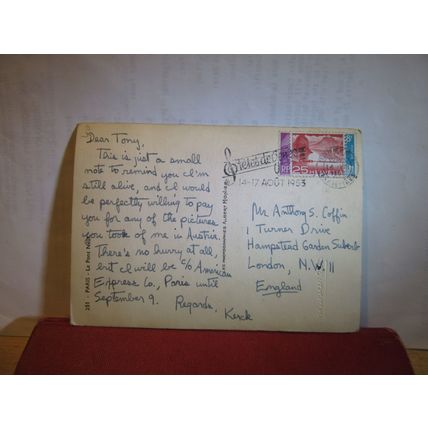 Dear Tony,
This is just a small
note to remind you I'm
still alive, and I would
be perfectly willing to pay
you for any of the pictures
you took of me in Austria.
There's no hurry at all,
but I will be c/o American
Express Co., Paris until
September 9.
Regards,
Kerck
251 - PARIS - Le Pont
ALBERT
14-17 AOÛT 1953
25
HELVETIA
Mr Anthony S. Coffin
1 Turner Drive
Hampstead Garden Suburb
London, N.W. 11
England